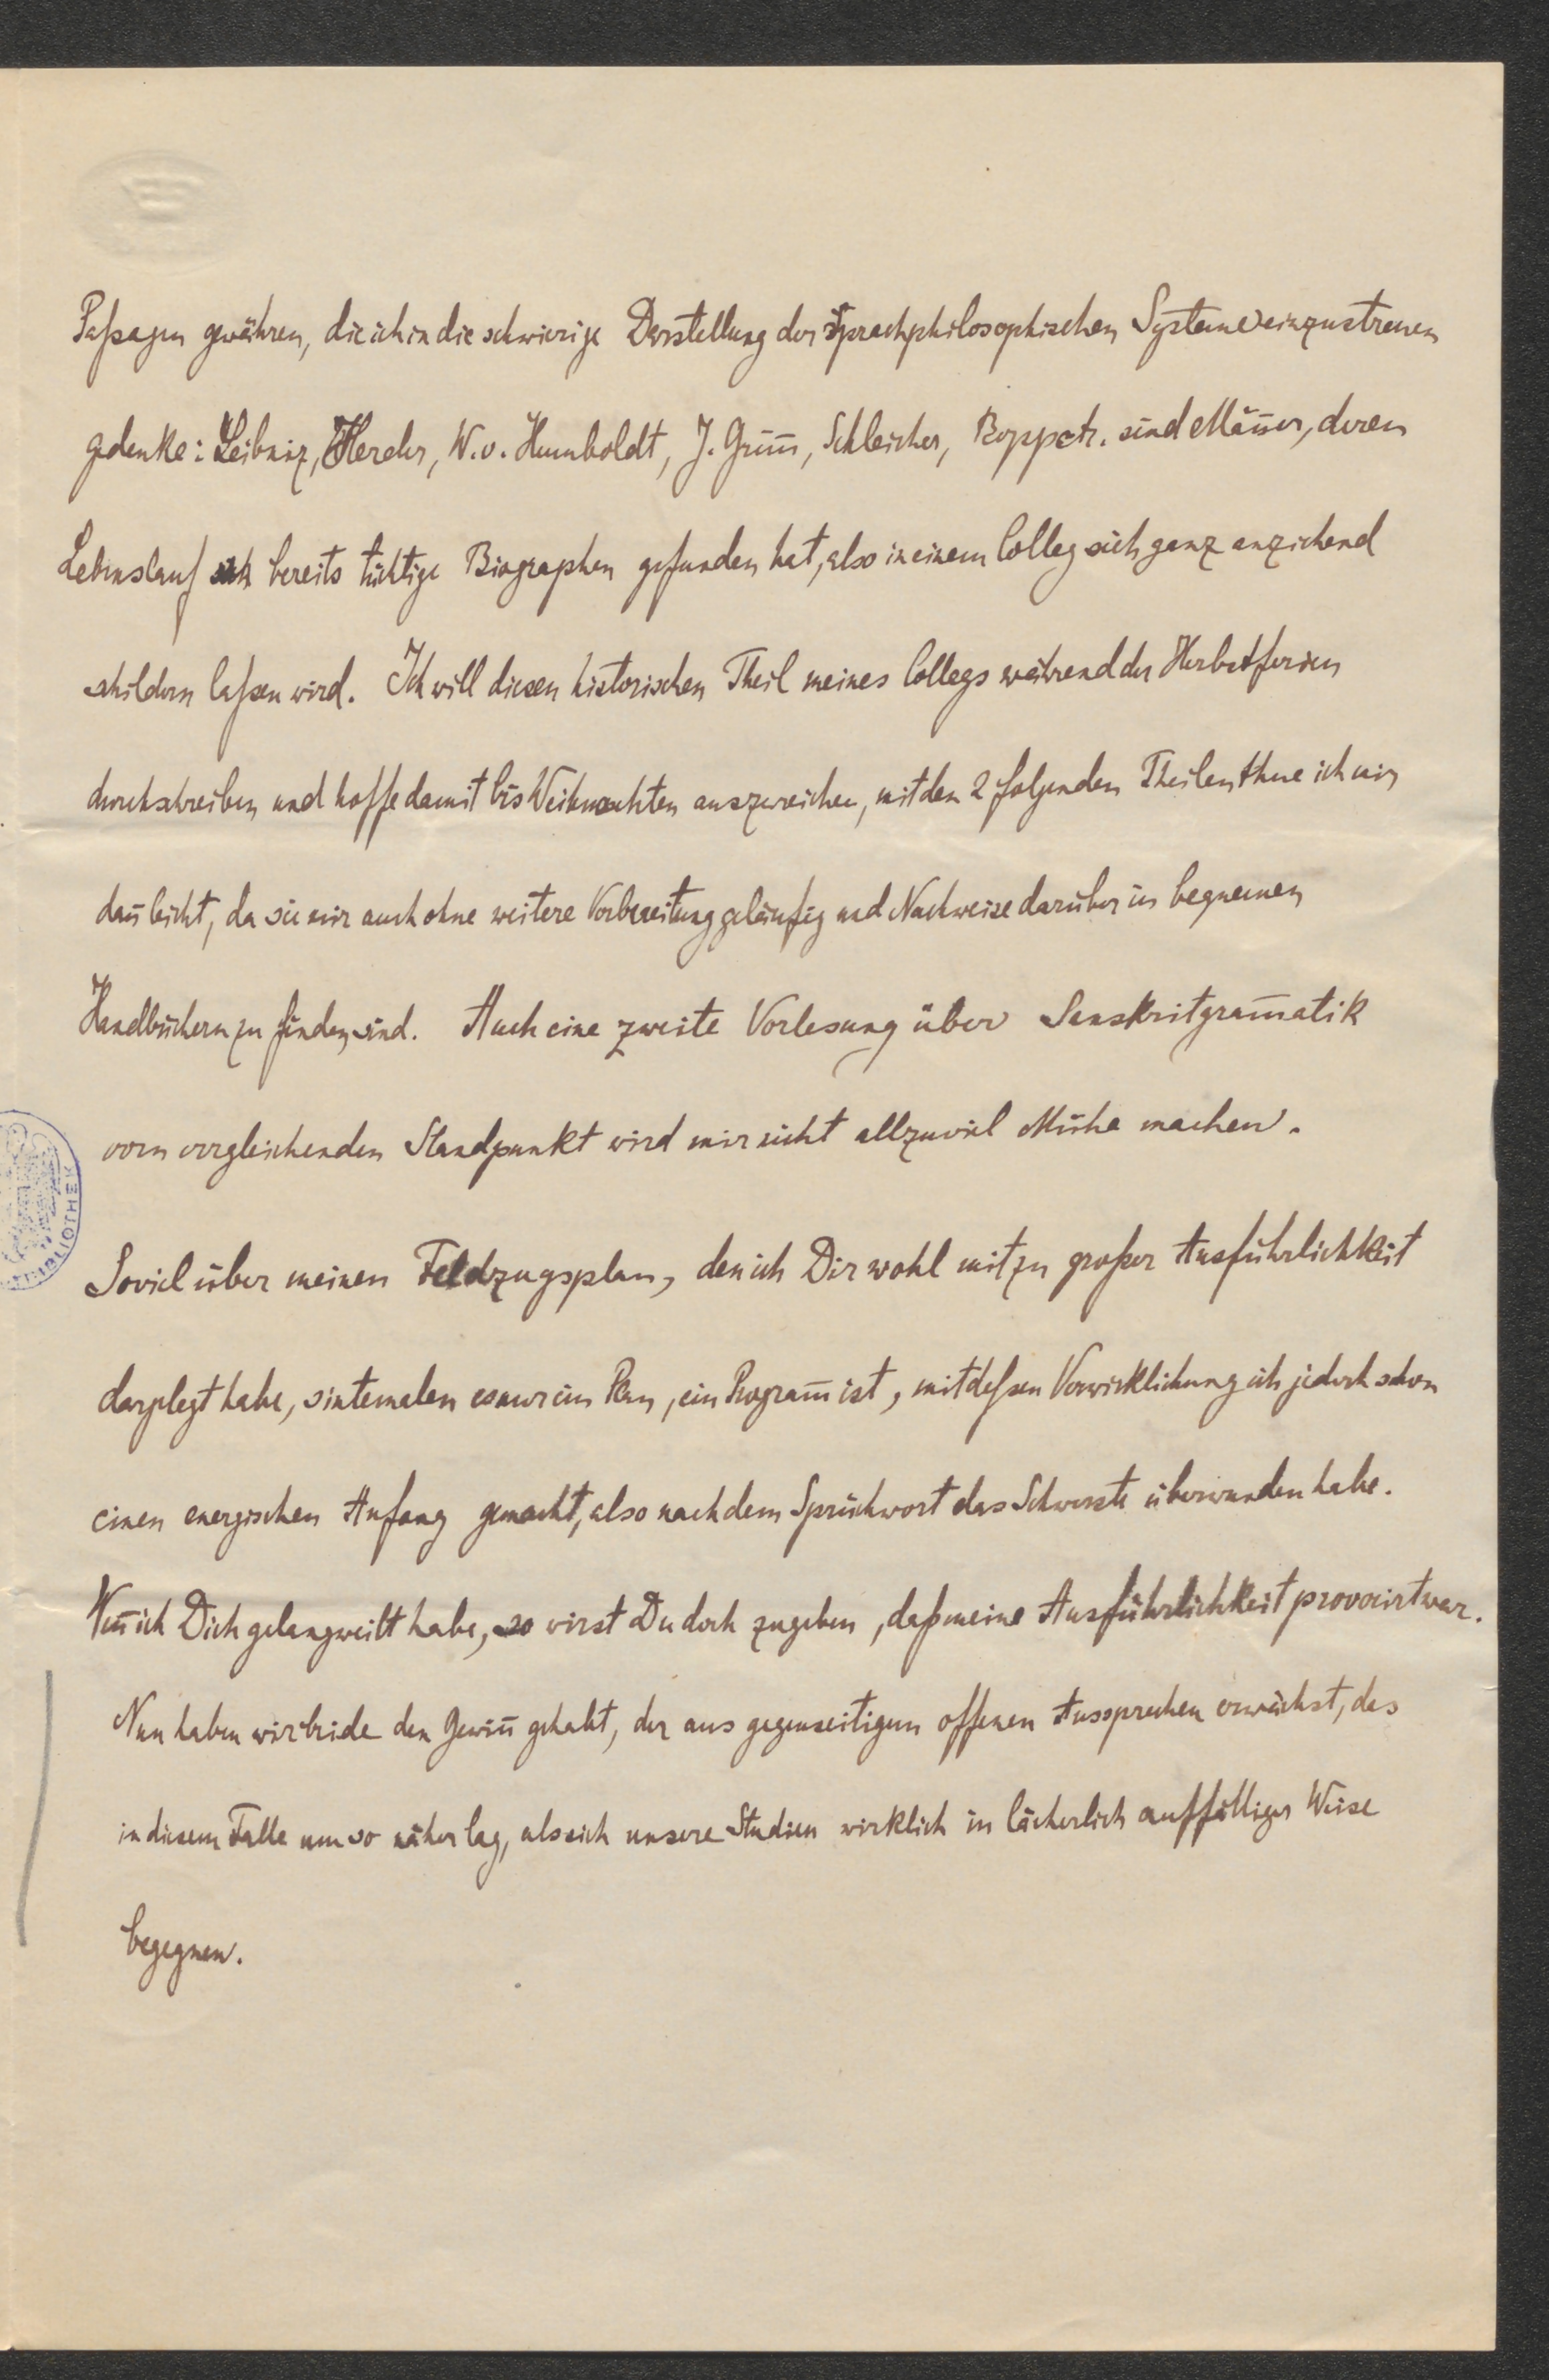 Paßagen gewähren, die ich in die schwierige Darstellung der sprachphilosophischen Systeme einzustreuen
gedenke: Leibniz, Herder, W. v. Humboldt, J. Grim̅, Schleicher, Bopp etc. sind Män̅er, deren
Lebenslauf bereits tüchtige Biographen gefunden hat, also in einem Colleg sich ganz anziehend
schildern laßen wird. Ich will diesen historischen Theil meines Collegs während der Herbstferien
durchschreiben und hoffe damit bis Weihnachten auszureichen, mit den 2 folgenden Theilen thue ich mir
dan̅ leicht, da sie mir auch ohne weitere Vorbereitung geläufig und Nachweise darüber in bequemen
Handbüchern zu finden sind. Auch eine zweite Vorlesung über Sanskritgram̅atik
vom vergleichenden Standpunkt wird mir nicht allzuviel Mühe machen.
Soviel über meinen Feldzugsplan, den ich Dir wohl mit zu großer Ausführlichkeit
dargelegt habe, sintemalen es nur ein Plan, ein Program̅ ist, mit deßen Verwirklichung ich jedoch schon
einen energischen Anfang gemacht, also nach dem Sprüchwort das Schwerste überwunden habe.
Wen̅ ich Dich gelangweilt habe, so wirst Du doch zugeben, daß meine Ausführlichkeit provocirt war.
Nun haben wir beide den Gewin̅ gehabt, der aus gegenseitigem offenen Aussprechen erwächst, das
in diesem Falle um so näher lag, als sich unsere Studien wirklich in lächerlich auffälliger Weise
begegnen.
BIBLIOTHEK